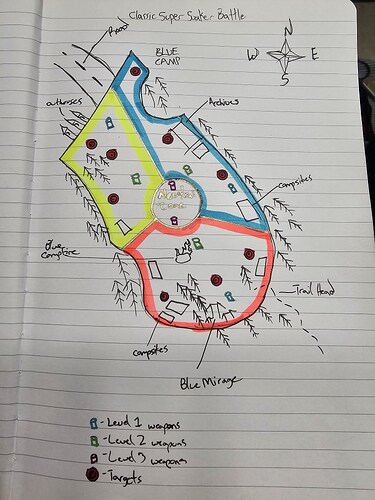 Classic Super Soaker Battle
N
Road
BLUE
CAMP
W
E
S
outhouses
Archives
campsites
Blue
Campfire
Trail Head
campsites
Blue Mirage
- Level 1 weapons
- Level 2 weapons
- Level 3 weapons
- Targets